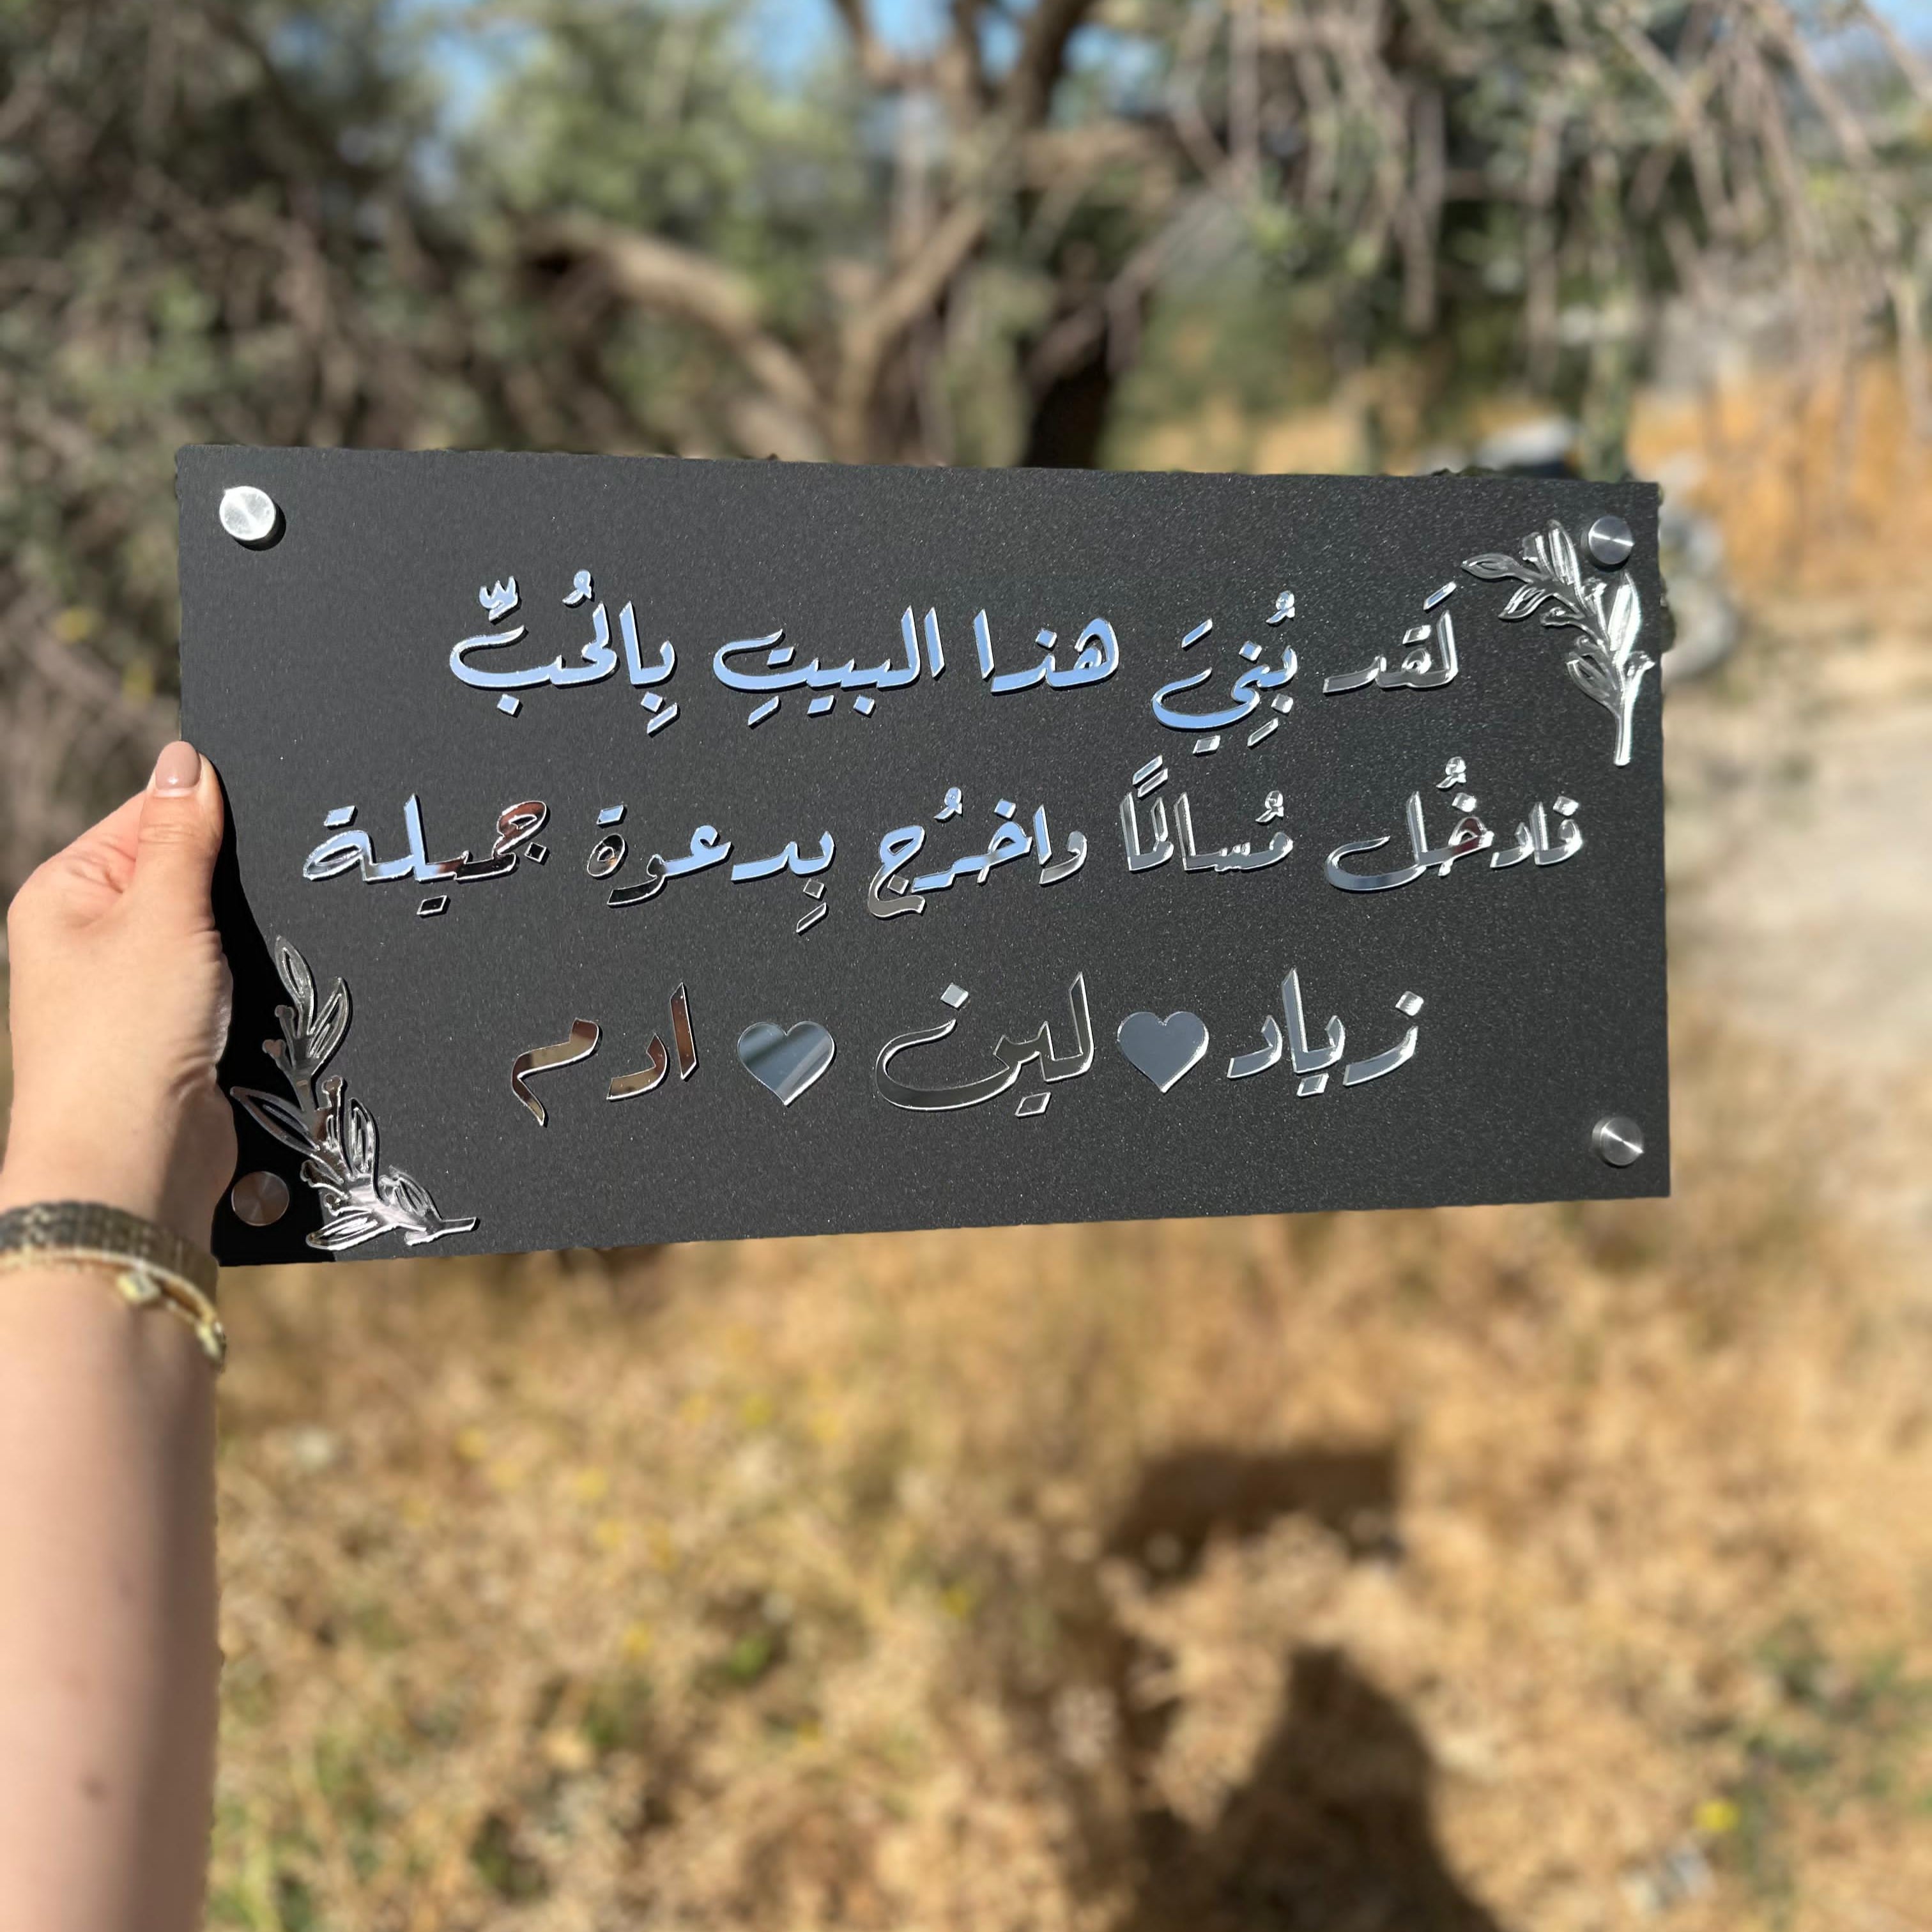 لَقد بُنِيَ هذا البيتِ بِالحُبِّ
فادخُل مُسالمًا واخرُج بِدعوة جميلة
زياد ♥ لين ♥ ادم